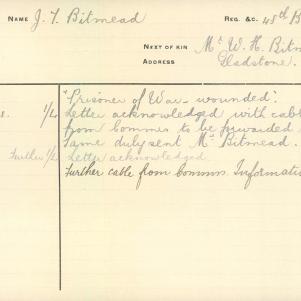 NAME J. T. Bitmead REG. &C. 48th B
NEXT OF KIN Mr W. H. Bitm
ADDRESS Gladstone.
"Prisoner of War - wounded".
Letter acknowledged with cabl
from Commns to be forwarded
Same duly sent Mr Bitmead.
Further Letter acknowledged
Further cable from Commns. Informati